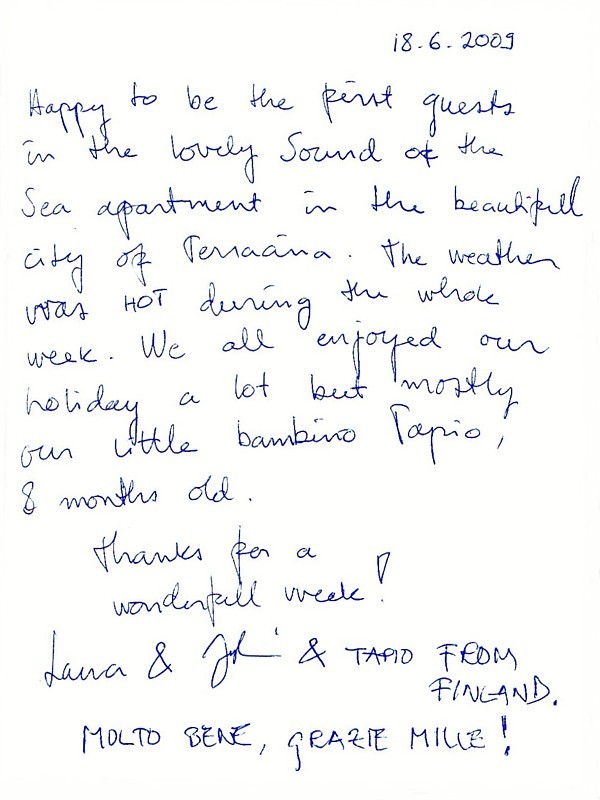 18.6.2009
Happy to be the first guests
in the lovely Sound of the
Sea apartment in the beautifull
city of Terracina. The weather
was HOT during the whole
week. We all enjoyed our
holiday a lot but mostly
our little bambino Tapio,
8 months old.
Thanks for a
wonderfull week!
Laura & & TAPIO FROM
FINLAND.
MOLTO BENE, GRAZIE MILLE!